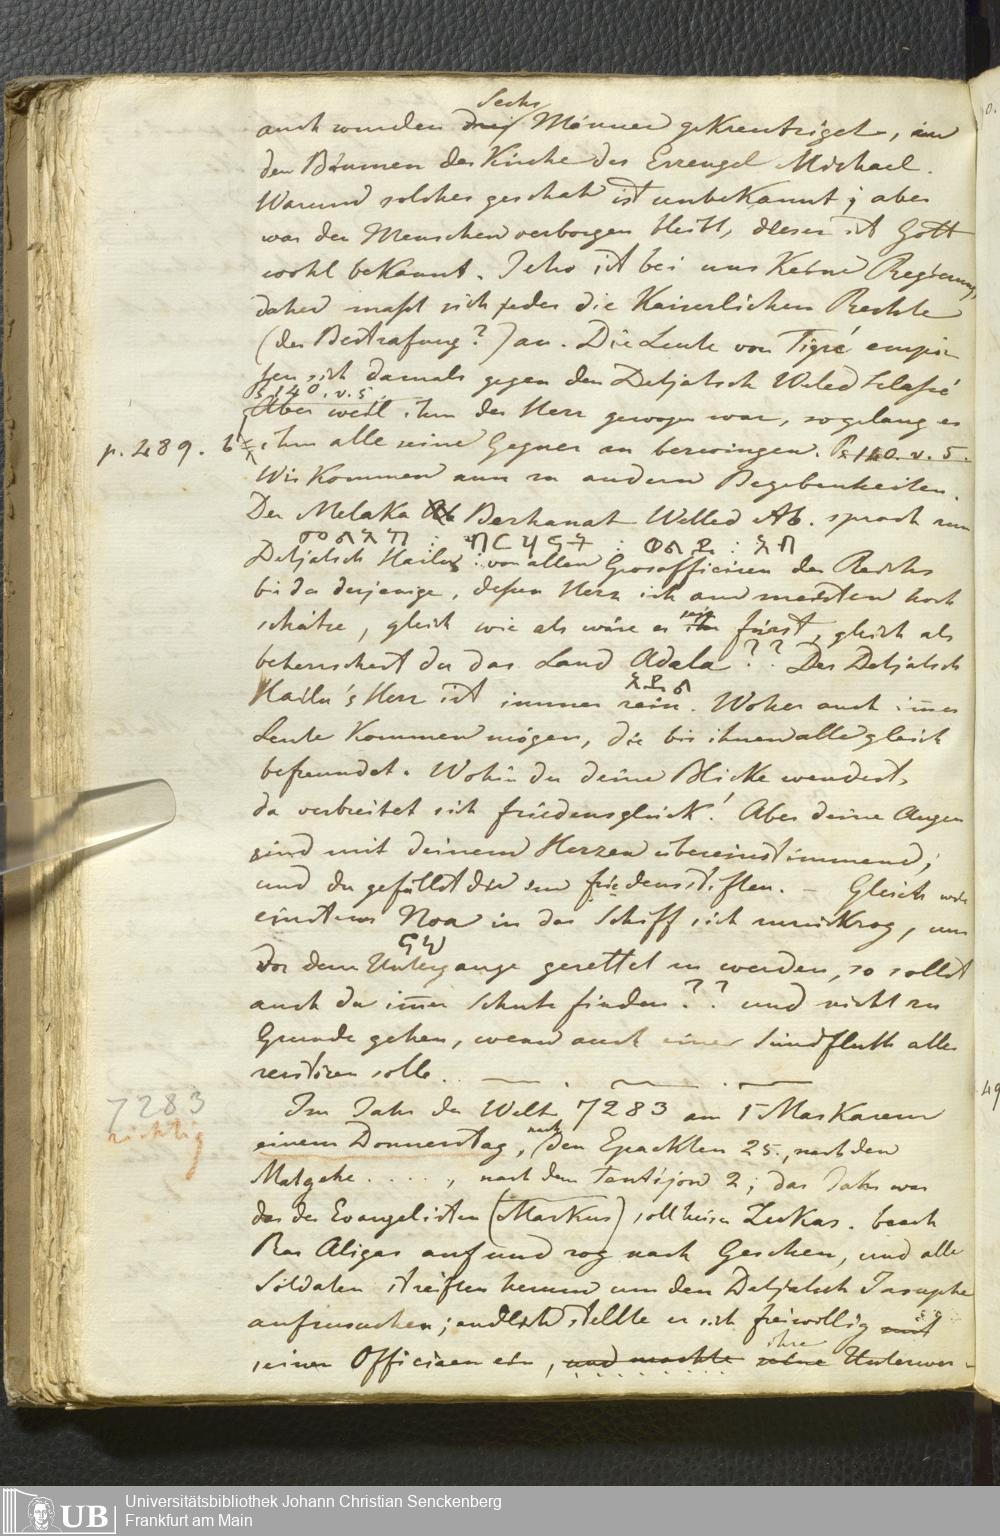 Sechs
auch wurden drei Männer gekreutziget, an
den Bäumen der Kirche des Erzengel Michael.
Warum solches geschah ist unbekannt; aber
was den Menschen verborgen bleibt, dieses ist Gott
wohl bekannt. Jetzo ist bei uns keine Regierung,
daher maßt sich jeder die Kaiserlichen Rechte
(der Bestrafung?) an. Die Leute von Tigré empör-
ten sich damals gegen den Detjatsch Weled Selasié
Ps 140. v. 5.
Aber weil ihm der Herr gewogen war, so gelang es
p. 289. b
ihm alle seine Gegner zu bezwingen. Ps 140. v. 5.
Wir kommen nun zu andern Begebenheiten.
Der Melaka Ab Berhanat Welled Ab. sprach zum
መልአከ : ብርሃናት : ወልደ : አብ
Detjatsch Hailu: von allen Grosofficiren des Reichs
bis du derjenige, deßen Herz ich am meisten hoch
schätze, gleich wie als wäre es ihr fürst, gleich als
mein
beherrschest du das Land Adala?? Des Detjatsch
አደላ
Hailu's Herz ist immer rein. Woher auch imer
Leute kommen mögen, die bis ihnen alle gleich
befreundet. Wohin du deine Blicke wendest,
da verbreitet sich friedensglück! Aber deine Augen
sind mit deinem Herzen übereinstimmend;
und du gefällst dir im friedensstiften. – Gleich wie
einstens Noa in das Schiff sich zurückzog, um
vor dem Untergange gerettet zu werden, so sollst
auch du imer Schutz finden?? und nicht zu
Grunde gehen, wenn auch eine Sündfluth alles
zerstören solle.
7283
richtig
Im Jahr der Welt 7283 am 1 Maskarem
einem Donnerstag, nach den Epackten 25., nach den
Matgehe ...., nach dem Tentijon 2; das Jahr war
das des Evangelisten (Markus) soll heisen Luckas. brach
Ras Aligas auf und zog nach Geschen, und alle
Soldaten streiften herum um den Detjatsch
aufzusuchen; endlich stellte er sich freiwillig mit
seinen Officieren ein, und machte seine Unterwer-
ihre
49
Universitätsbibliothek Johann Christian Senckenberg
Frankfurt am Main
UB